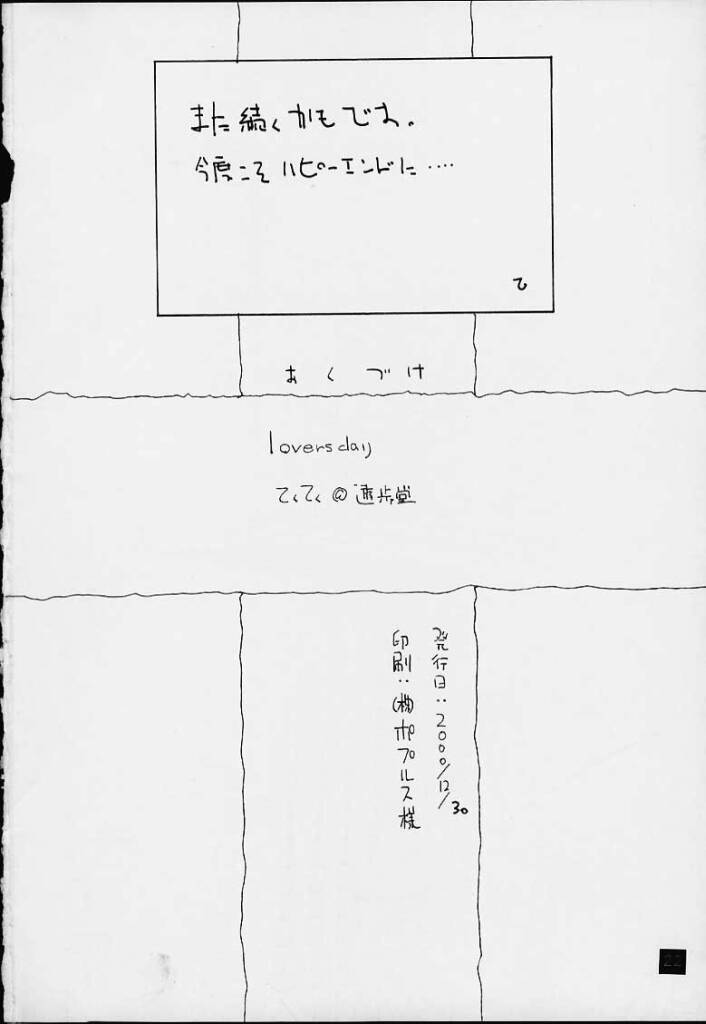 また続くかもです。
今度こそハピーエンドに‥‥
て
おくづけ
loversday
てくてく@速歩堂
発行日：2000/12/30
印刷：㈱ポプルス様
22